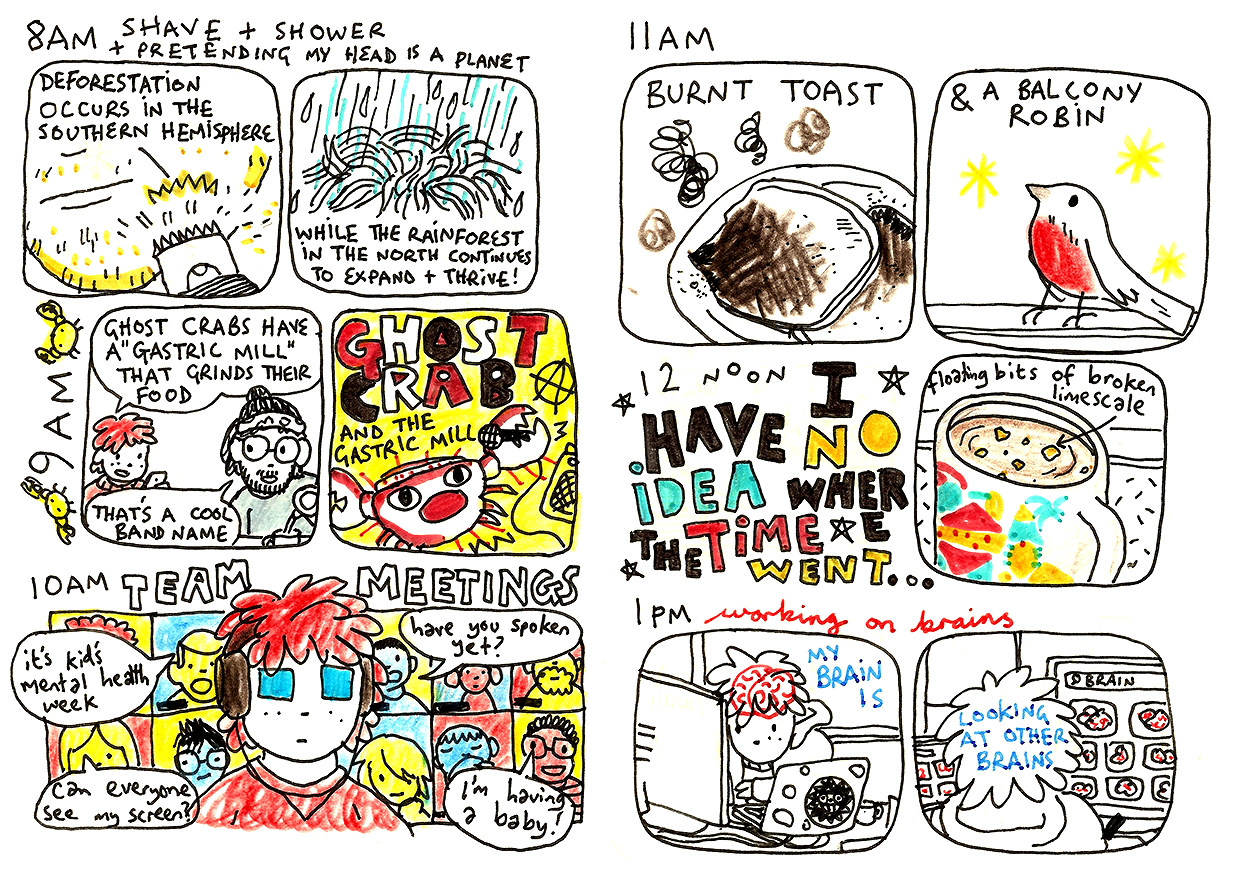 8AM SHAVE + SHOWER
+ PRETENDING MY HEAD IS A PLANET
DEFORESTATION
OCCURS IN THE
SOUTHERN HEMISPHERE
WHILE THE RAINFOREST
IN THE NORTH CONTINUES
TO EXPAND + THRIVE!
9AM
GHOST CRABS HAVE
A "GASTRIC MILL"
THAT GRINDS THEIR
FOOD
THAT'S A COOL
BAND NAME
GHOST
CRAB
AND THE
GASTRIC MILL
10AM TEAM MEETINGS
it's kid's
mental health
week
have you spoken
yet?
can everyone
see my screen?
I'm having
a baby!
11AM
BURNT TOAST
& A BALCONY
ROBIN
12 NOON
I
HAVE NO
IDEA WHERE
THE TIME
WENT...
floating bits of broken
limescale
1PM working on brains
MY
BRAIN
IS
BRAIN
LOOKING
AT OTHER
BRAINS